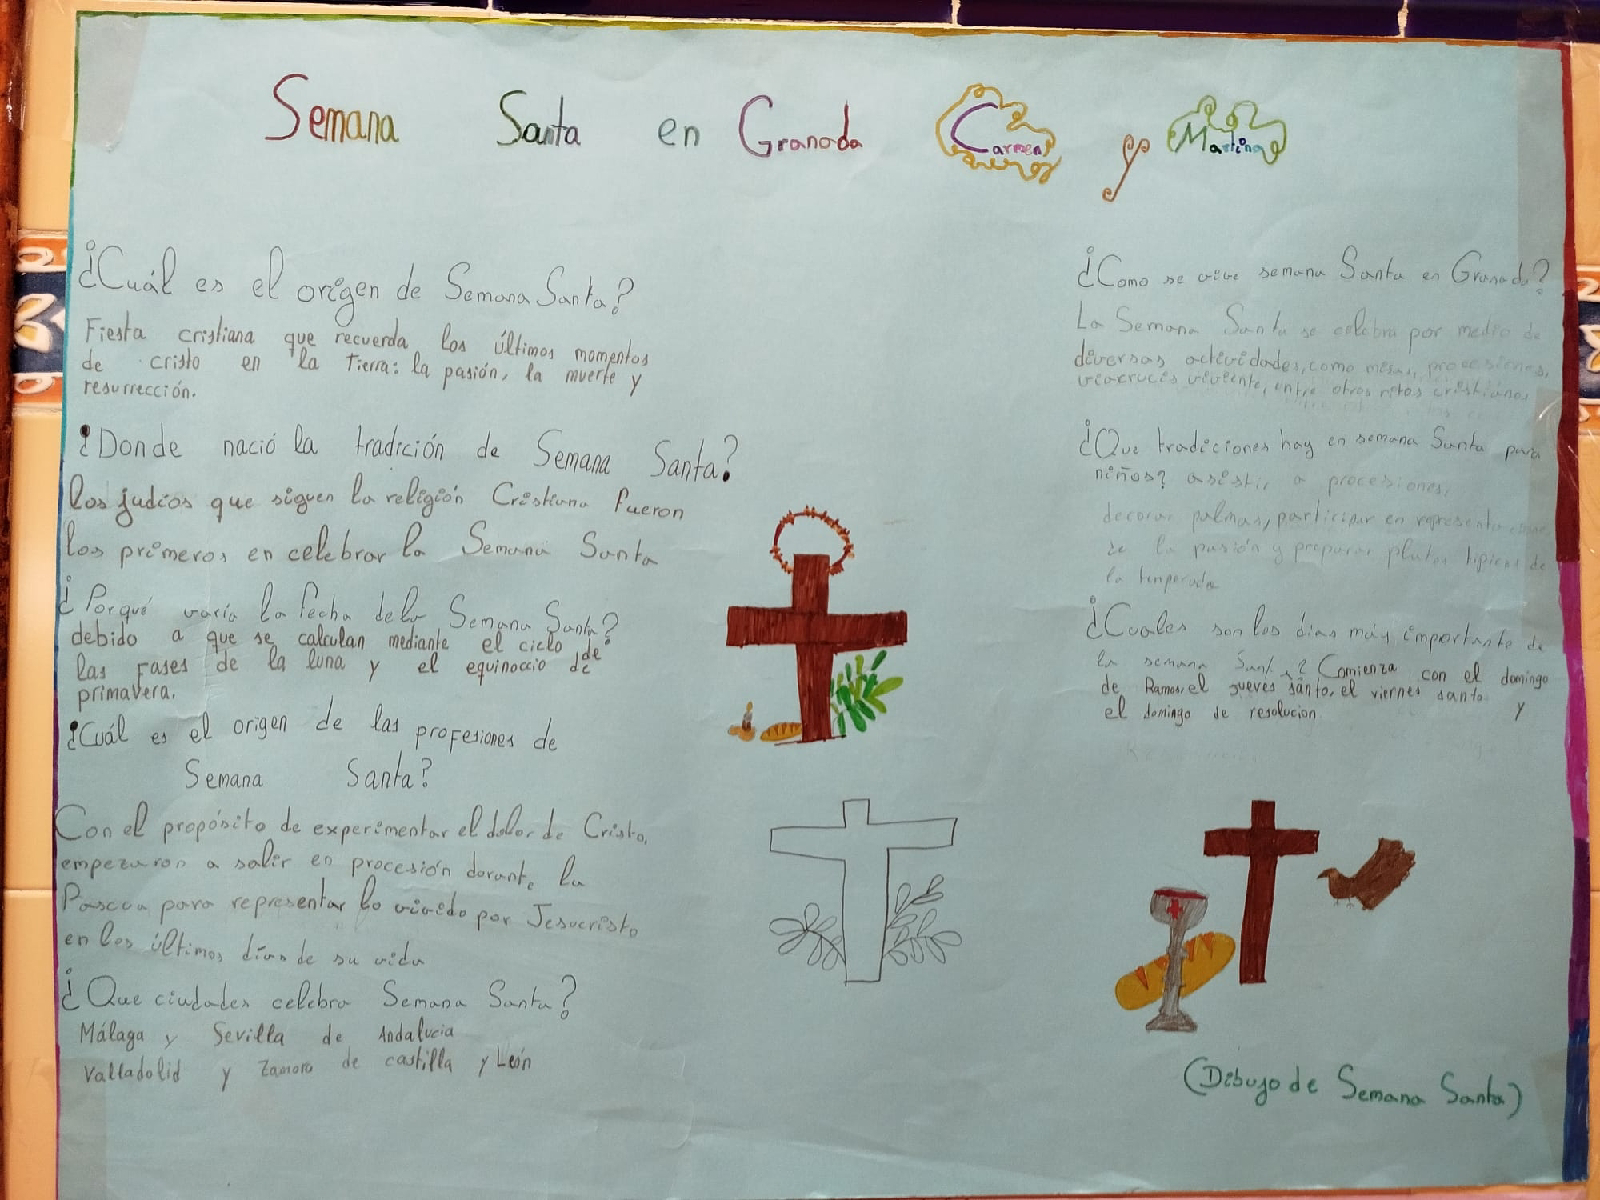 Semana Santa en Granada Carmen y Martina
¿Cuál es el origen de Semana Santa?
Fiesta cristiana que recuerda los últimos momentos
de cristo en la Tierra: la pasión, la muerte y
resurrección.
¿Donde nació la tradición de Semana Santa?
los judios que siguen la religión Cristiana fueron
los primeros en celebrar la Semana Santa
¿Porqué varia la fecha de la Semana Santa?
debido a que se calculan mediante el ciclo de
las fases de la luna y el equinoccio de
primavera.
¿Cuál es el origen de las profesiones de
Semana Santa?
Con el propósito de experimentar el dolor de Cristo,
empezaron a salir en procesión durante la
Pascua para representar lo vivido por Jesucristo
en los últimos días de su vida
¿Que ciudades celebra Semana Santa?
Málaga y Sevilla de Andalucia
Valladolid y Zamora de castilla y León
¿Como se vive semana Santa en Granada?
La Semana Santa se celebra por medio de
diversas actividades, como misas, procesiones,
viacrucis viviente, entre otros ritos cristianos
¿Que tradiciones hay en semana Santa para
niños? asistir a procesiones,
decorar palmas, participar en
de la pasión y preparar platos tipicos de
la temporada
¿Cuales son los días más importante de
la semana Santa? Comienza con el domingo
de Ramos, el jueves santo, el viernes santo y
el domingo de resolucion
(Dibujo de Semana Santa)